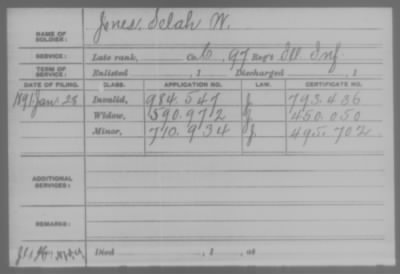 NAME OF SOLDIER: Jones, Selah W.
SERVICE: Late rank, Co. C, 97 Reg't Ill. Inf.
TERM OF SERVICE: Enlisted , 1 Discharged , 1
DATE OF FILING. CLASS. APPLICATION NO. LAW. CERTIFICATE NO.
1891 Jan. 28 Invalid, 984.547 J 793.436
Widow, 590.972 450.050
Minor, 710.934 J. 495.702
ADDITIONAL SERVICES:
REMARKS:
Died , 1 , at